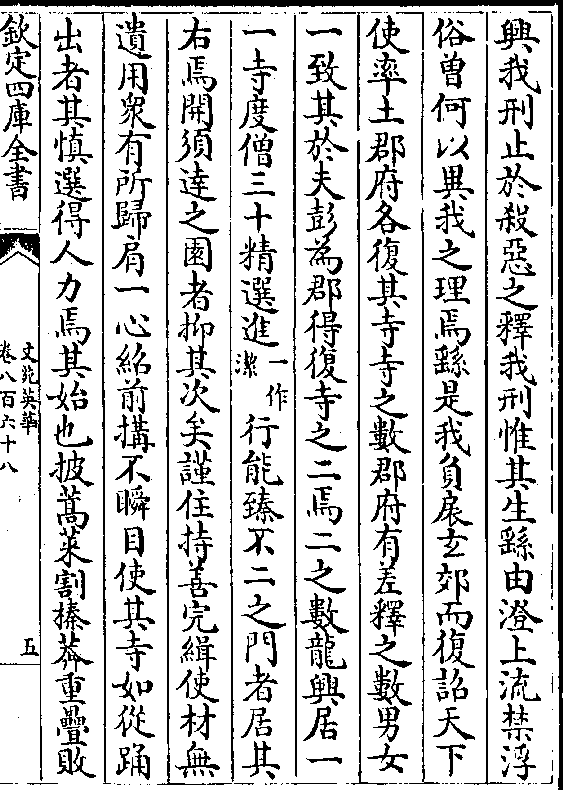 興我刑止於殺惡之釋我刑惟其生繇由澄上流禁浮
俗曾何以異我之理焉繇是我負扆玄郊而復詔天下
使率土郡府各復其寺寺之數郡府有差釋之數男女
一致其於夫彭為郡得復寺之二焉二之數龍興居一
一寺度僧三十精選進一作潔行能臻不二之門者居其
右焉開須達之園者抑其次矣謹住持善完緝使材無
遺用衆有所歸肩一心紹前搆不瞬目使其寺如從踊
出者其慎選得人力焉其始也披蒿萊割榛莽重疊敗
欽定四庫全書
文苑英華
卷八百六十八
五